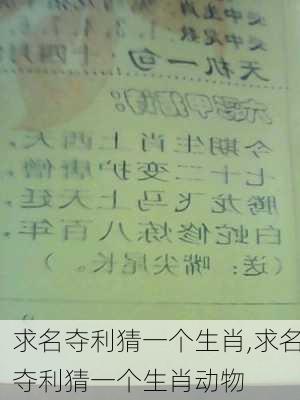 天机一句
今期生肖上西天
七十二变护唐僧
腾龙飞马上天廷
白蛇修炼八百年,
(送:嘴尖尾长。)
求名夺利猜一个生肖,求名
夺利猜一个生肖动物